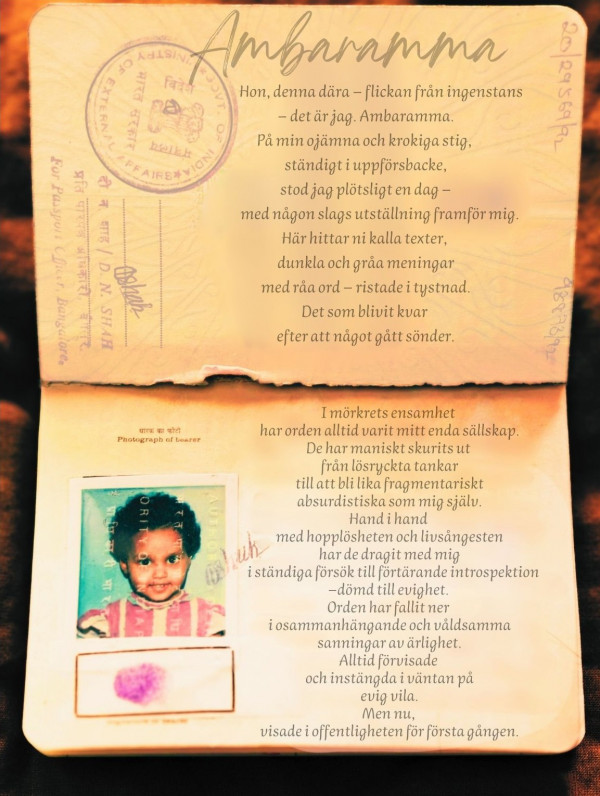 Ambaramma
Hon, denna dära – flickan från ingenstans
– det är jag. Ambaramma.
På min ojämna och krokiga stig,
ständigt i uppförsbacke,
stod jag plötsligt en dag –
med någon slags utställning framför mig.
Här hittar ni kalla texter,
dunkla och gråa meningar
med råa ord – ristade i tystnad.
Det som blivit kvar
efter att något gått sönder.
MINISTRY OF EXTERNAL AFFAIRS
GOVT. OF INDIA
भारत सरकार
विदेश
मंत्रालय
D. N. SHAH
For Passport Officer, Bangalore.
धारक का फोटो
Photograph of bearer
I mörkrets ensamhet
har orden alltid varit mitt enda sällskap.
De har maniskt skurits ut
från lösryckta tankar
till att bli lika fragmentariskt
absurdistiska som mig själv.
Hand i hand
med hopplösheten och livsångesten
har de dragit med mig
i ständiga försök till förtärande introspektion
–dömd till evighet.
Orden har fallit ner
i osammanhängande och våldsamma
sanningar av ärlighet.
Alltid förvisade
och instängda i väntan på
evig vila.
Men nu,
visade i offentligheten för första gången.